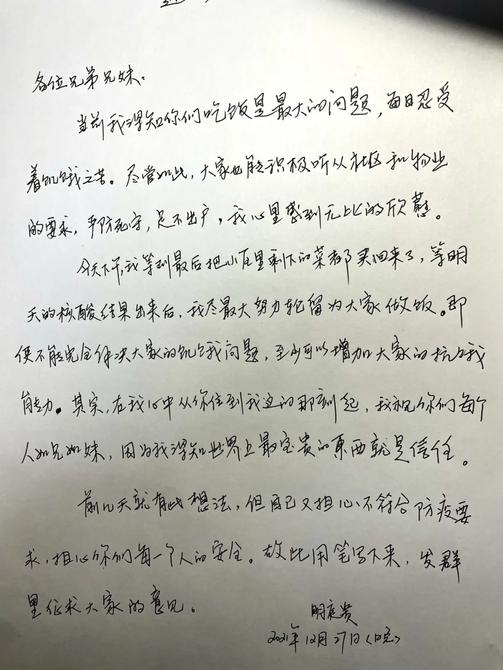 各位兄弟兄妹.
当前我深知你们吃饭是最大的问题,每日忍受
着饥饿之苦。尽管如此,大家也能积极听从社区和物业
的要求,严防死守,足不出户,我心里感到无比的欣慰。
今天下午我等到最后把小店里剩下的菜都买回来了,等明
天的核酸结果出来后,我尽最大努力轮留为大家做饭。即
使不能完全解决大家的饥饿问题,至少可以增加大家的抗饿
能力。其实,在我心中从你住到我这的那刻起,我视你们每个
人如兄如妹,因为我深知世界上最宝贵的東西就是信任。
前几天就有此想法,但自己又担心不符合防疫要
求,担心你们每一个人的安全。故此用笔写下来,发群
里征求大家的意见。
2021年12月27日